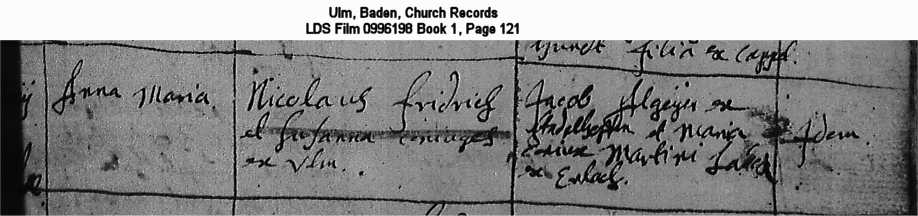 Ulm, Baden, Church Records
LDS Film 0996198 Book 1, Page 121
filia ex Cappel.
Anna Maria.
Nicolaus Fridrich
et Susanna coniuges
ex Ulm.
Jacob Algeyer ex
et Maria
Coniux Martini
ex Erlach.
Idem.